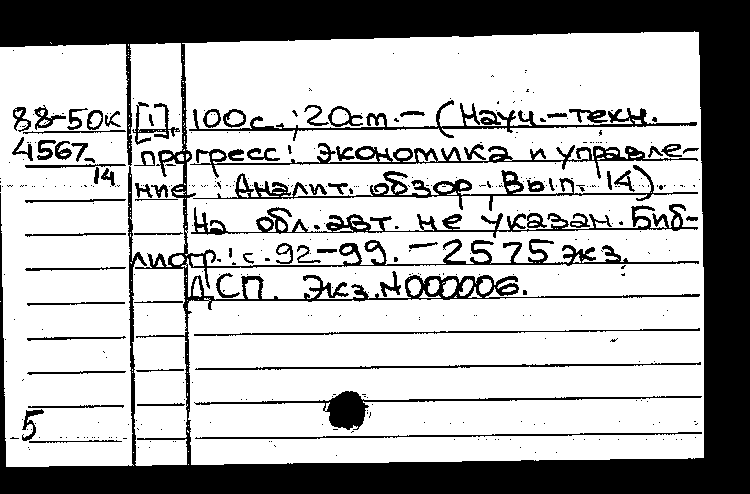 88-50к [1], 100с.; 20ст. – (Науч.-техн.
4567 прогресс: экономика и управле-
14 ние: Аналит. обзор; Вып. 14).
На обл. авт. не указан. Биб-
лиогр.: с. 92-99. – 2575 экз.
ДСП. Экз. N000006.
5